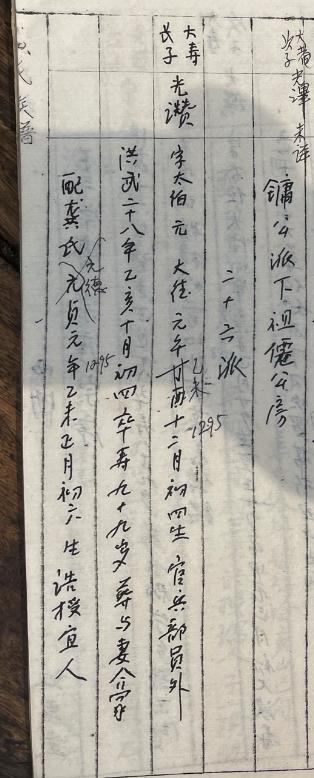 大寿 光澤 未详
长子
镛公派下祖儒公房
二十六派
大寿
长子 光讚 字太伯 元 大德元年甘酉十二月初四生 官兵部员外
乙未
1295
洪武二十八年乙亥十月初四卒寿九十九岁葬与妻合冢
配龚氏元贞元年乙未正月初六生诰授宜人
元德
1295
氏族谱